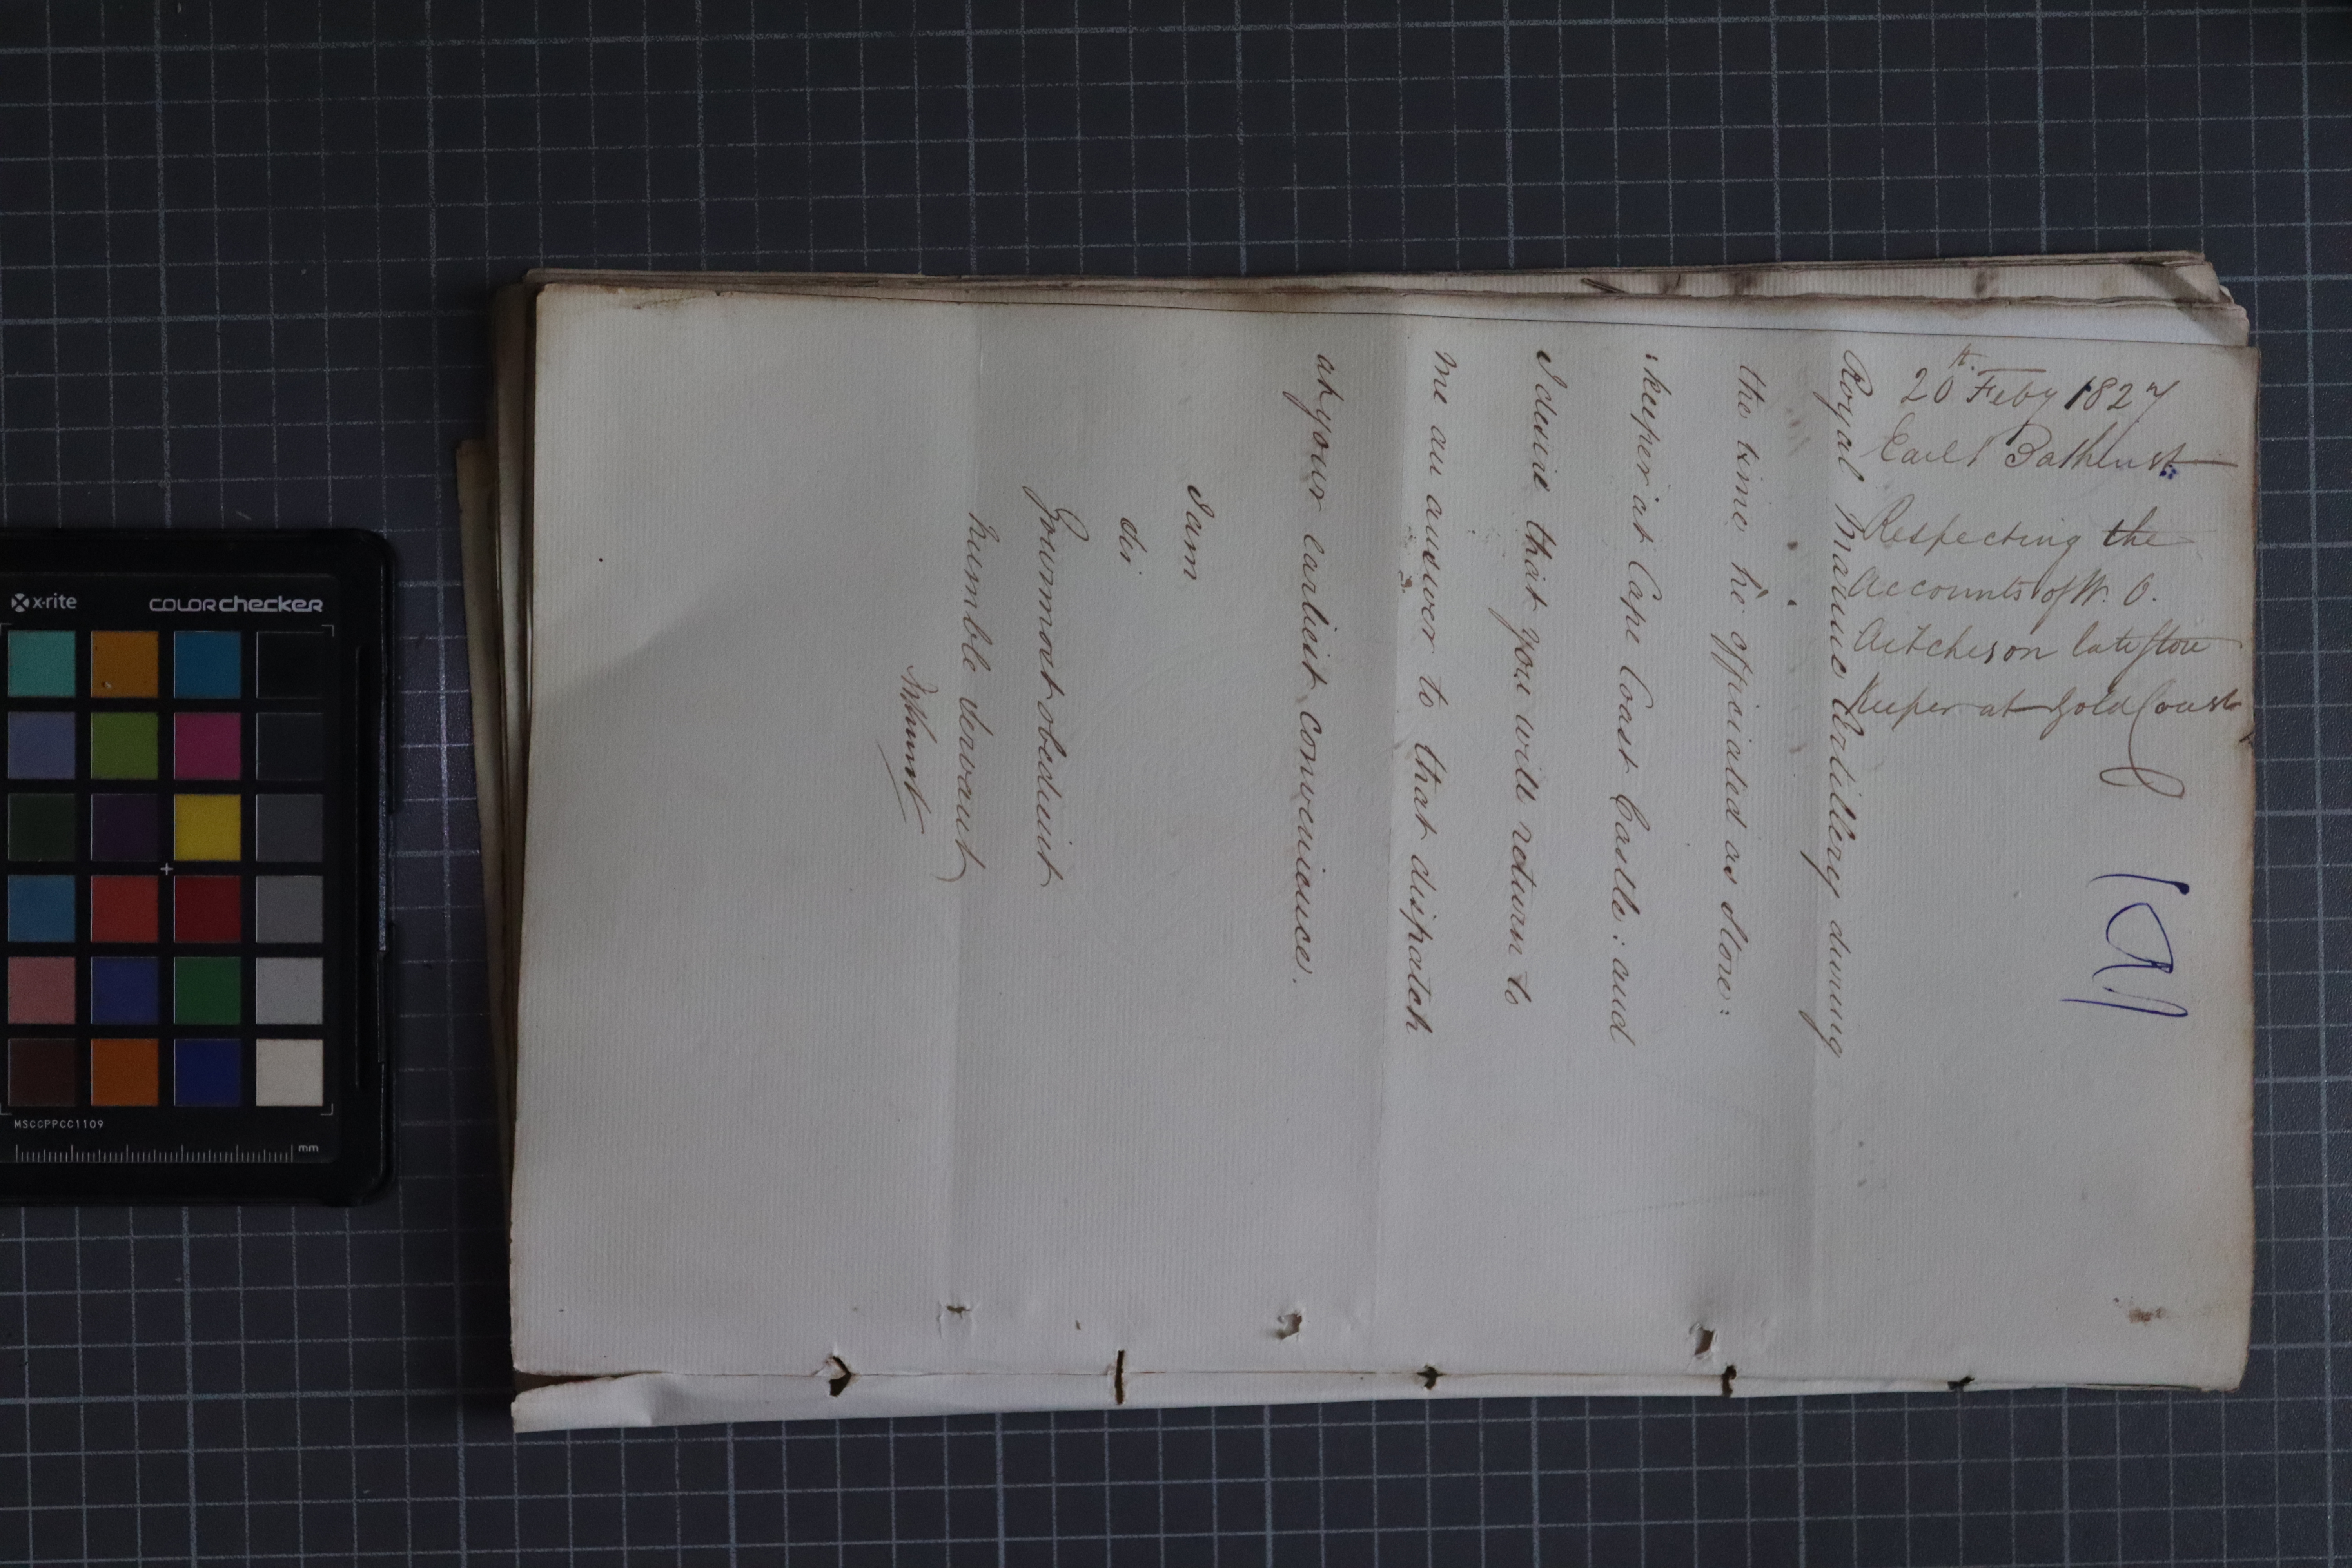 20th. Feby 1827
Earl Bathurst
Respecting the
Accounts of W. O.
Aitcheson late Store
Keeper at Gold Coast
Royal Marine Artillery during
the time he officiated as Store:
:keeper at Cape Coast Castle: and
I desire that you will return to
me an answer to that dispatch
at your earliest convenience.
I am
Sir
Your most obedient
humble Servant
Bathurst
x-rite
COLORchecker
MSCCPPCC1109
mm